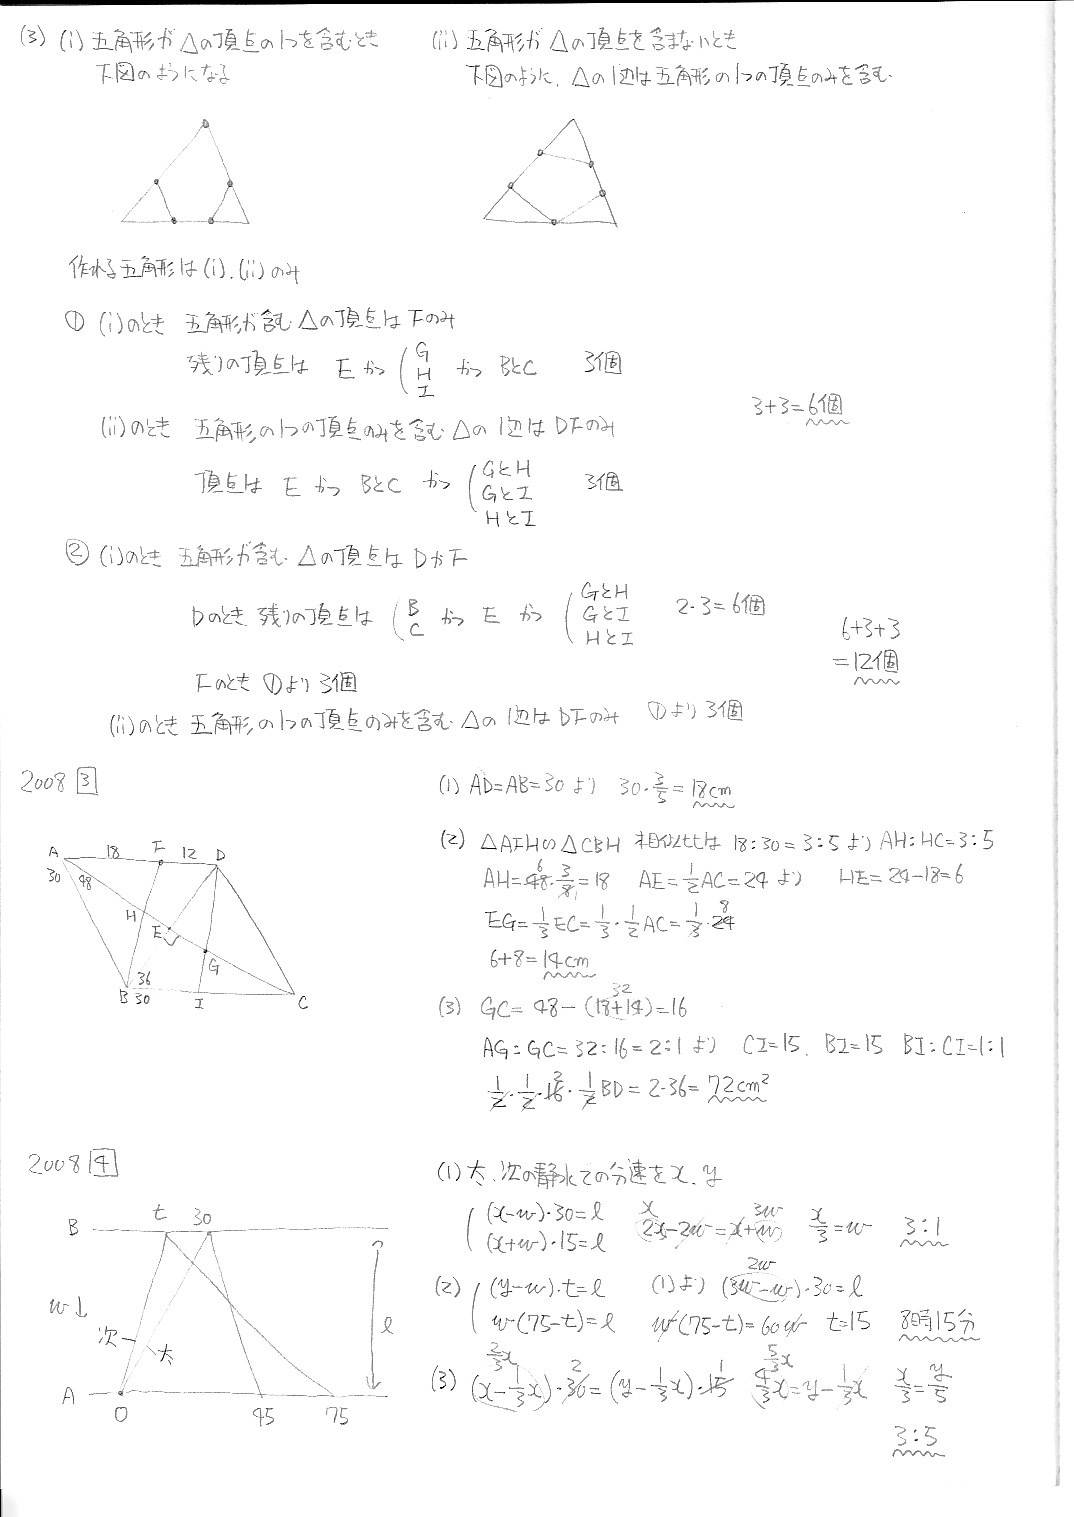 (3) (i) 五角形が△の頂点の1つを含むとき
下図のようになる
(ii) 五角形が △の頂点を含まないとき
下図のように、△の1辺は五角形の1つの頂点のみを含む
作れる五角形は(i),(ii)のみ
① (i)のとき 五角形が含む△の頂点はFのみ
残りの頂点は Eかつ ( G H I かつ BとC 3個
(ii)のとき 五角形の1つの頂点のみを含む△の1辺はDFのみ
頂点は E かつ BとC かつ ( GとH GとI HとI 3個
3+3=6個
② (i)のとき 五角形が含む△の頂点は DかF
Dのとき 残りの頂点は ( B C かつ E かつ ( GとH GとI HとI 2・3=6個
Fのとき ①より 3個
(ii)のとき 五角形の1つの頂点のみを含む△の1辺はDFのみ ①より 3個
6+3+3
=12個
2008 3
A 18 F 12 D
30 48
H
E
G
36
B 30 I C
(1) AD=AB=30より 30・3/5=18cm
(2) △AFH∽△CBH 相似比は 18:30=3:5より AH:HC=3:5
AH=48・3/8=18 AE=1/2AC=24より HE=24-18=6
6
EG=1/3EC=1/3・1/2AC=1/3・24
8
6+8=14cm
(3) GC=48-(18+14)=16
32
AG:GC=32:16=2:1より CI=15, BI=15 BI:CI=1:1
1/2・1/2・16・1/2BD=2・36=72cm²
2
2008 4
B t 30
w↓
次 太
l
A 0 45 75
(1) 太、次の静水での分速をx, y
( (x-w)・30=l
(x+w)・15=l
2x-2w=x+w x/3=w 3:1
x 3w
(2) ( (y-w)・t=l (1)より (3w-w)・30=l
2w
w(75-t)=l w(75-t)=60w t=15 8時15分
(3) (x-1/3x)・30=(y-1/3x)・15 4/3x=y-1/3x x/3=y/5
2/3x 2 1 5/3x
3:5